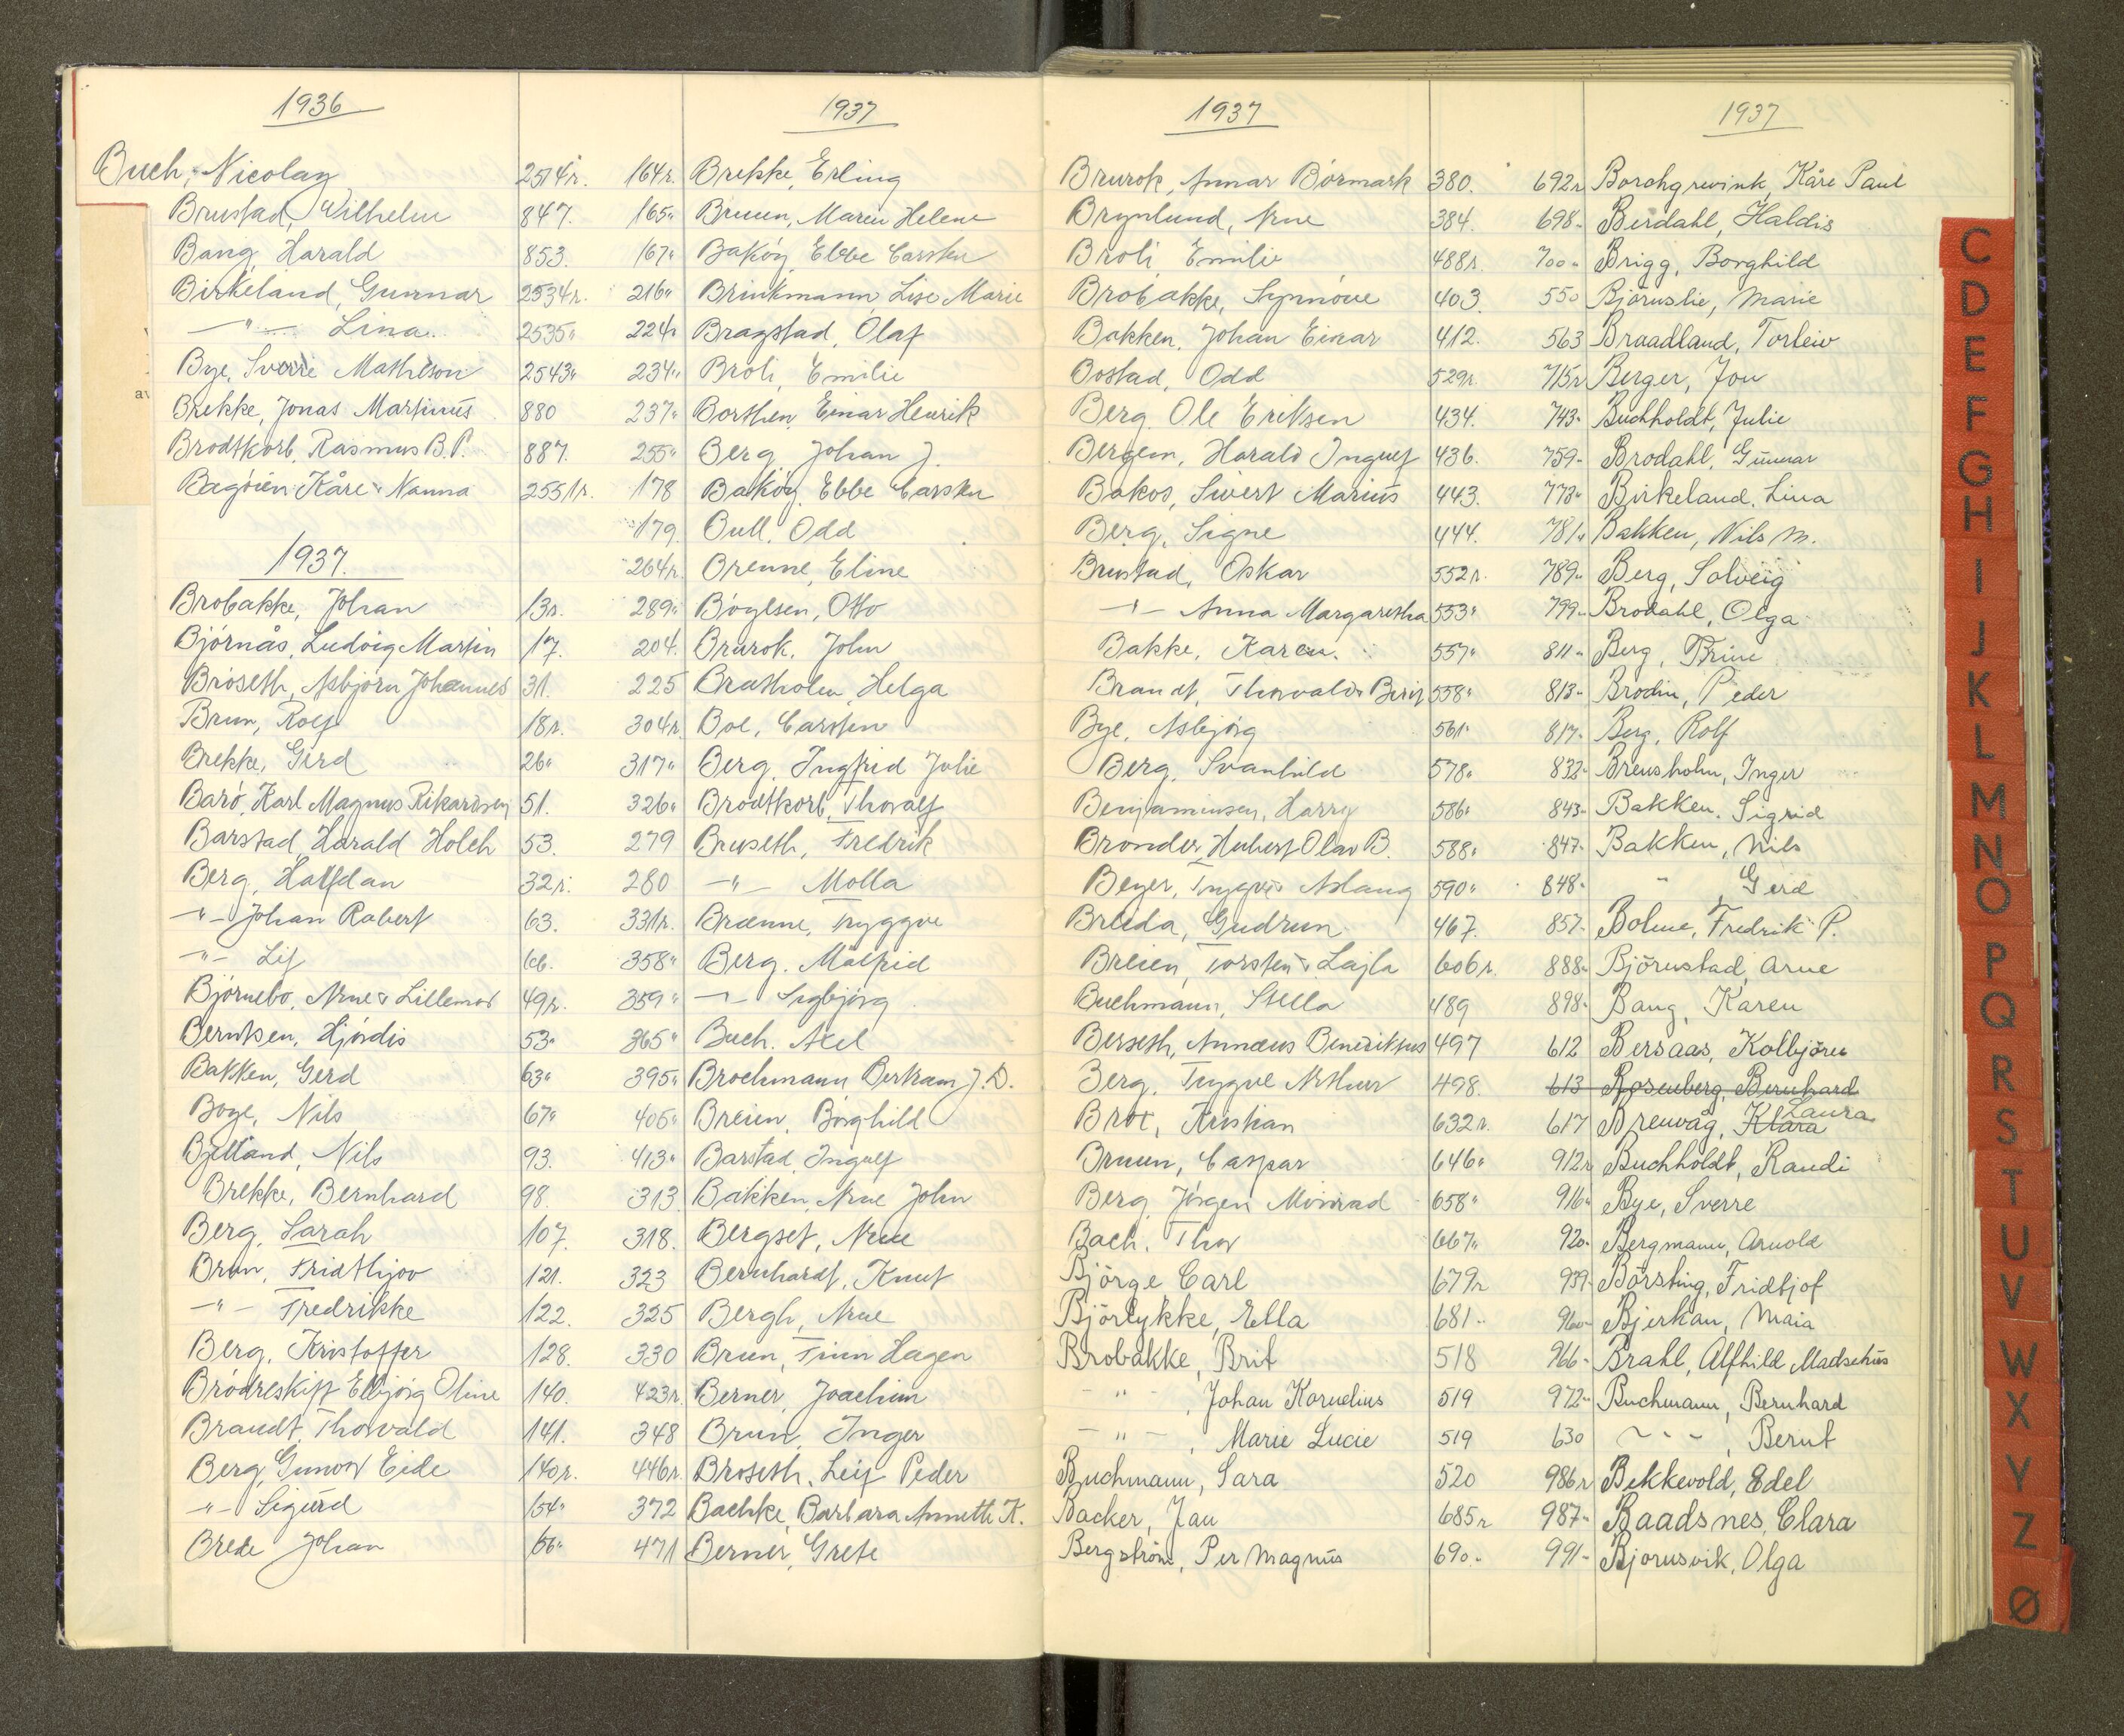 1936
Buch, Nicolay 2514r.
Brustad, Wilhelm 847.
Bang, Harald 853.
Birkeland, Gunnar 2534r.
-"- Lina. 2535"
Bye, Sverre Mathison 2543"
Brekke, Jonas Martinus 880
Brodtkorb, Rasmus B.P. 887.
Bagøien Kåre & Nanna 2551r.
1937.
Brobakke, Johan 13r.
Bjørnås, Ludvig Martin 17.
Brøseth, Asbjørn Johannes 31.
Brun, Rolf 18r.
Brekke, Gerd 26"
Barø, Karl Magnus Rikardsen 51.
Barstad, Harald Holch 53.
Berg, Halfdan 32r.
-"- Johan Robert 63.
-"- Lif 66.
Bjørnebo, Arne & Lillemor 49r.
Berntsen, Hjørdis 53"
Bakken, Gerd 63"
Boge, Nils 67"
Bjelland, Nils 93.
Brekke, Bernhard 98.
Berg, Sarah 107.
Brun, Fridthjov 121.
-"- Fredrikke 122.
Berg, Kristoffer 128.
Brødreskift Elbjørg Oline 140.
Brandt, Thorvald 141.
Berg, Gunvor Eide 140r.
-"- Sigurd 154"
Brede Johan 156"
1937
164r. Brekke, Erling
165" Bruun, Maren Helene
167" Bakøy, Ebbe Carsten
216" Brinkmann, Lise Marie
224" Bragstad, Olaf
234" Broli, Emilie
237" Borthen, Einar Henrik
255" Berg, Johan J.
178 Bakøy, Ebbe Carsten
179. Bull, Odd
264r. Brenne, Eline
289" Bøylsen, Otto
204. Brurok, John
225 Bratholm, Helga
304r. Boe, Carsten
317" Berg, Ingfrid Julie
326" Brodtkorb, Thoralf
279 Bruseth, Fredrik
280 -"- Molla
331r. Brænne, Tryggve
358" Berg, Målfrid
359" -"- Sigbjørg
365" Buch, Axel
395" Brochmann Bertram J.D.
405" Breien, Borghild
413" Barstad, Ingulf
313 Bakken, Arne John
318. Bergset, Arne
323 Bernhardt, Knut
325 Bergh, Arne
330 Brun, Finn Hagen
423r. Berner, Joachim
348 Brun, Inger
446r. Broseth, Leif Peder
372 Bachke, Barbara Annette K.
471 Berner, Grete
1937
Brurok, Annar Børmark 380.
Brynlund, Arne 384.
Broli, Emilie 488r.
Brobakke, Synnøve 403.
Bakken, Johan Einar 412.
Bostad, Odd 529r.
Berg, Ole Eriksen 434.
Bergem, Harald Ingulf 436.
Bakos, Sivert Marius 443.
Berg, Signe 444.
Brustad, Oskar 552r.
-"- Anna Margaretha 553"
Bakke, Karen. 557"
Brandt, Thorvald & Berit 558"
Bye, Asbjørg 561"
Berg, Svanhild 578"
Benjaminsen, Harry 586"
Bronder, Hubert Olav B. 588"
Beyer, Trygve & Aslaug 590"
Breda, Gudrun 467.
Breien, Torsten & Lajla 606r.
Buchmann, Stella 489
Berseth, Annæus Benediktus 497
Berg, Trygve Arthur 498.
Brox, Kristian 632r.
Bruun, Caspar 646"
Berg, Jørgen Monrad 658"
Bach, Thor 667"
Bjørge Carl 679r
Bjørlykke, Ella 681"
Brobakke, Brit 518
- " - , Johan Kornelius 519
- " - , Marie Lucie 519
Buchmann, Sara 520
Backer, Jan 685r
Bergstrøm, Per Magnus 690"
1937
692r Borchgrevink, Kåre Paul
698" Berdahl, Haldis
700" Brigg, Borghild
550 Bjørnslie, Marie
563 Braadland, Torleiv
715r Berger, Jon
743" Buchholdt, Julie
759" Brodahl, Gunnar
773" Birkeland, Lina
781" Bakken, Nils M.
789" Berg, Solveig
799" Brodahl, Olga
811" Berg, Trine
813" Brodin, Peder
817" Berg, Rolf
832" Brensholm, Inger
843" Bakken, Sigrid
847" Bakken, Nils
848" " Gerd
857" Bolme, Fredrik P.
888" Bjørnstad, Arne
898" Bang, Karen
612 Bersaas, Kolbjørn
613 Rosenberg, Bernhard
617 Brenvåg, Klara Laura
912r Buchholdt, Randi
916" Bye, Sverre
920" Bergmann, Arnold
939" Børsting, Fridtjof
960" Bjerkan, Maia
966" Brahl, Alfhild Madschus
972" Buchmann, Bernhard
630 - " - , Berut
986r Bekkevold, Edel
987" Baadsnes, Clara
991" Bjørnsvik, Olga
C
D
E
F
G
H
I
J
K
L
M
N
O
P
Q
R
S
T
U
V
W
X
Y
Z
Ø